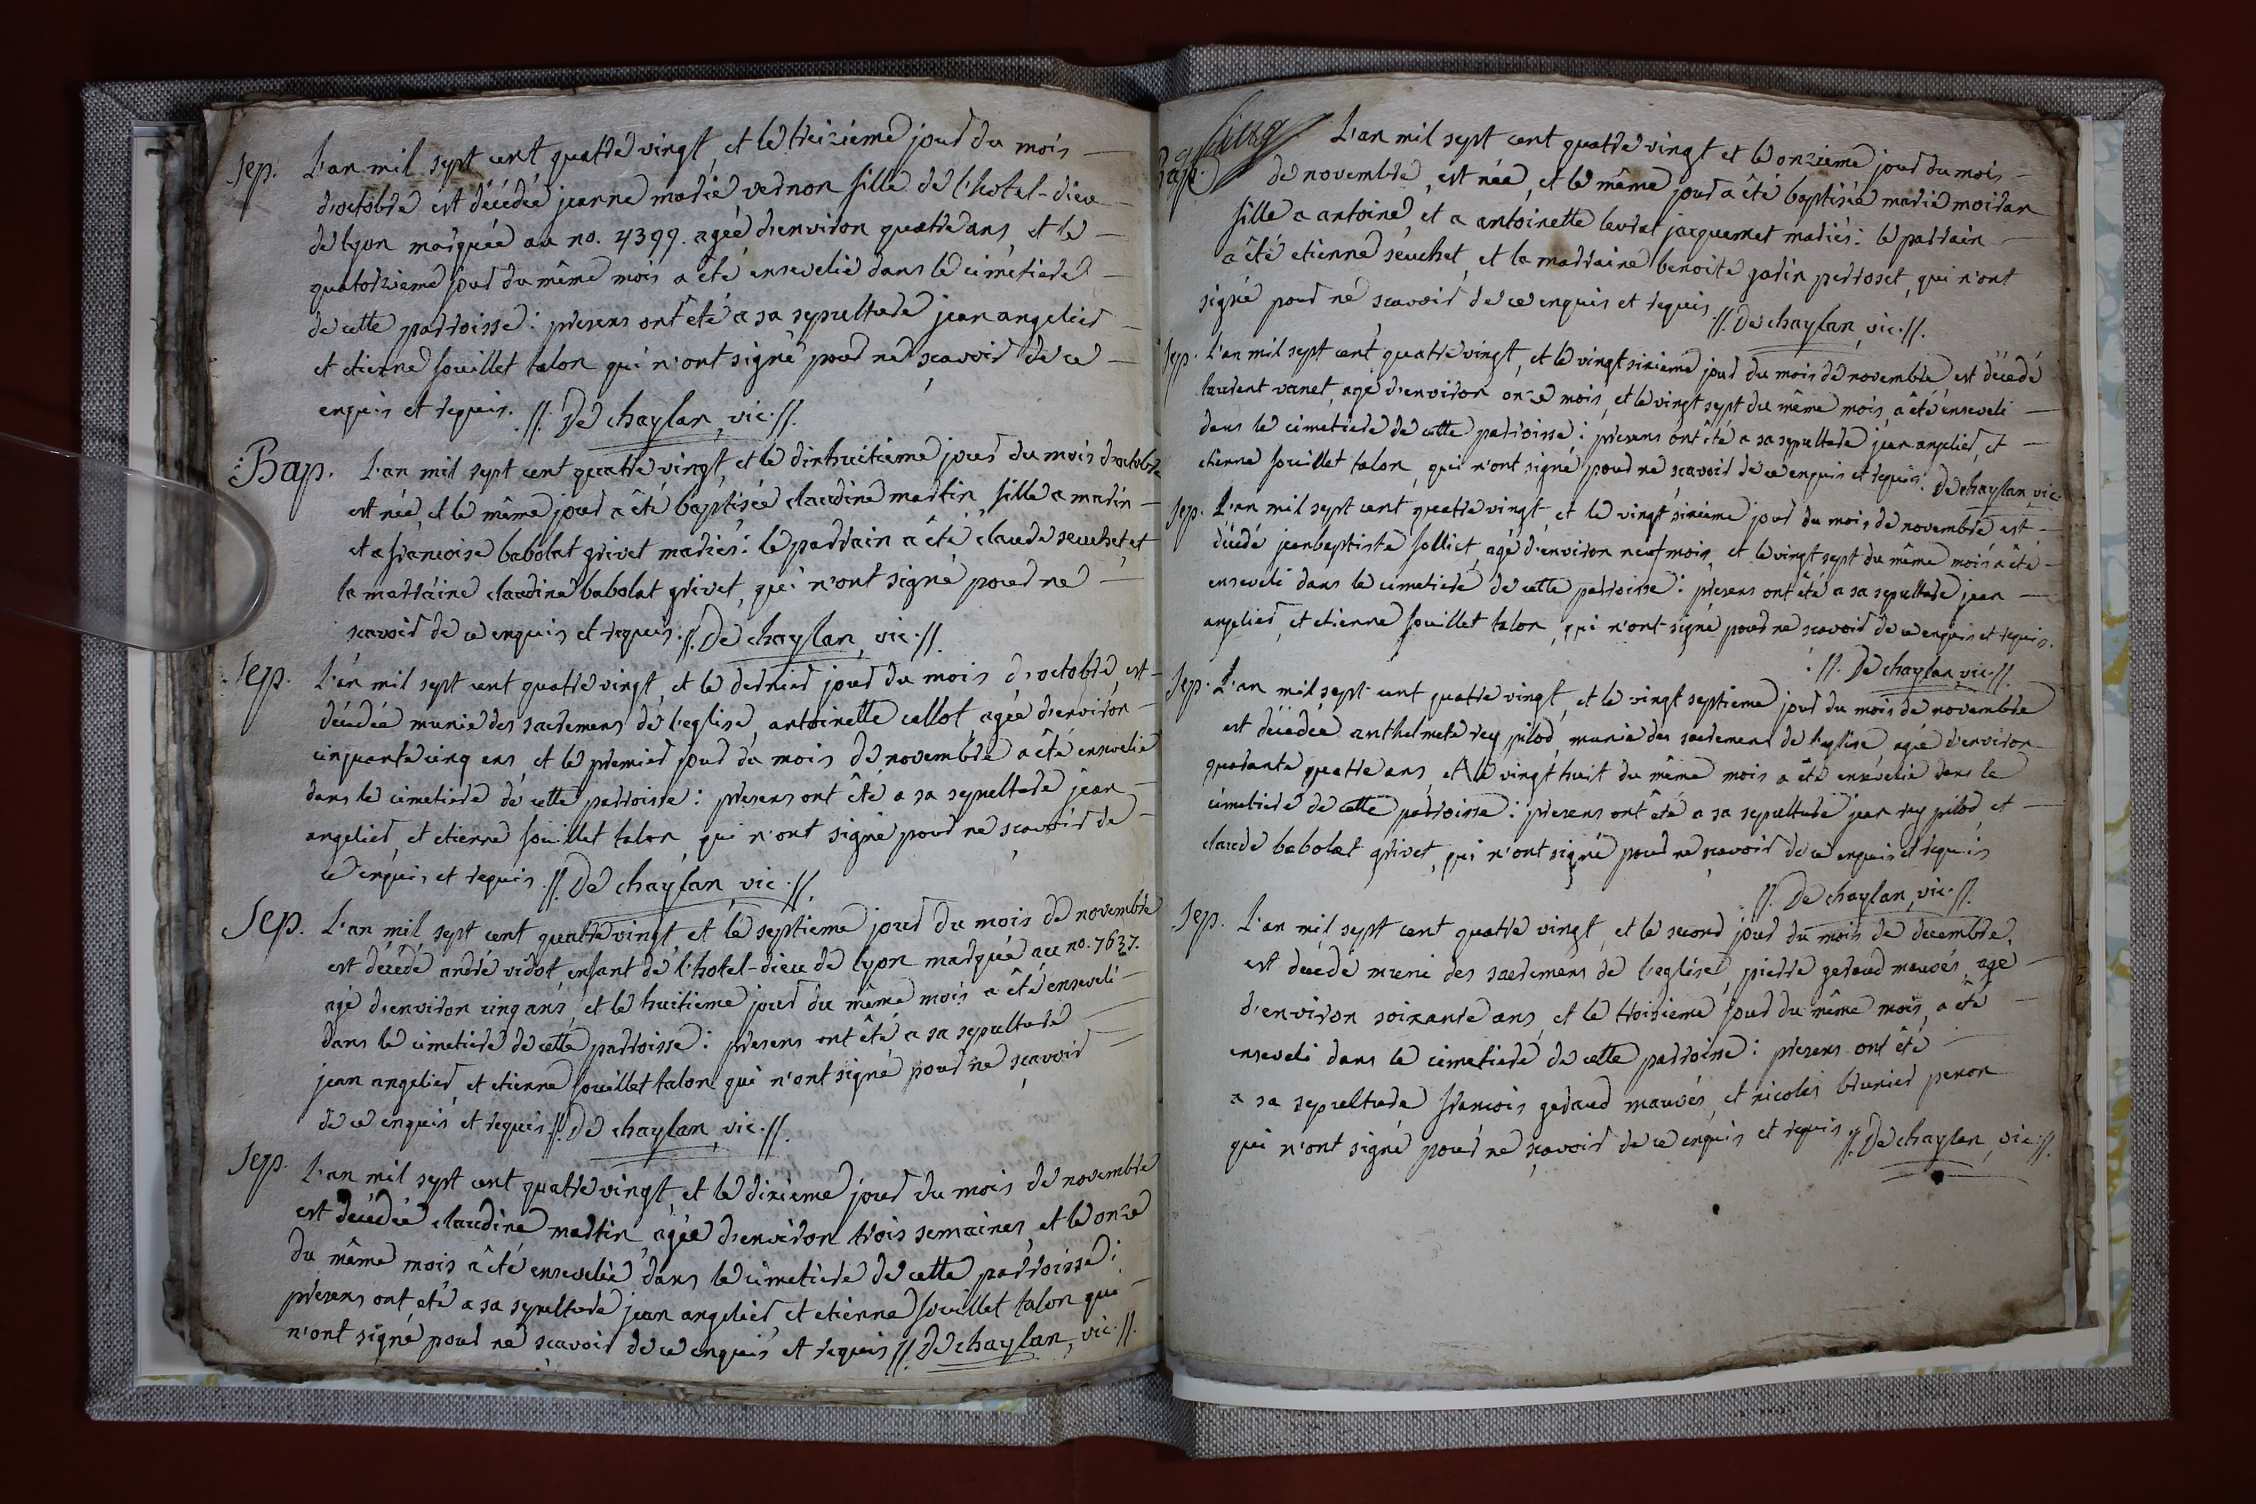 Sep. L'an mil sept cent quatre vingt, et le treizieme jour du mois
d'octobre est décédée jeanne marie vernon fille de l'hotel-dieu
de lyon marquée au no. 4399. agée d'environ quatre ans, et le
quatorzieme jour du même mois a été ensevelie dans le cimetiere
de cette parroisse : presens ont été a sa sepulture jean angelier
et etienne souillet talon qui n'ont signé pour ne sçavoir de ce
enquis et requis. //. De chaylan, vic. //.
Bap. L'an mil sept cent quatre vingt, et le dixhuitieme jour du mois d'octobre
est née, et le même jour a été baptisée claudine martin, fille a marin
et a francoise babolat grivet mariés : le parrain a été claude seuchet et
la marraine claudine babolat grivet, qui n'ont signé pour ne
scavoir de ce enquis et requis. //. De chaylan, vic. //.
Sep. L'an mil sept cent quatre vingt, et le dernier jour du mois d'octobre, est
décédée munie des sacremens de l'eglise, antoinette collot, agée d'environ
cinquante cinq ans, et le premier jour du mois de novembre a été ensevelie
dans le cimetiere de cette parroisse : presens ont été a sa sepulture jean
angelier, et etienne souillet talon qui n'ont signé pour ne sçavoir de
ce enquis et requis. //. De chaylan, vic. //.
Sep. L'an mil sept cent quatre vingt, et le septieme jour du mois de novembre
est décédé andré vidot enfant de l'hotel-dieu de lyon marqué au no. 7637.
agé d'environ cinq ans, et le huitieme jour du même mois a été enseveli
dans le cimetiere de cette parroisse : presens ont été a sa sepulture
jean angelier, et etienne souillet talon qui n'ont signé pour ne sçavoir
de ce enquis et requis. //. De chaylan, vic. //.
Sep. L'an mil sept cent quatre vingt, et le dixieme jour du mois de novembre
est décédée claudine martin, agée d'environ trois semaines, et le onze
du même mois a été ensevelie dans le cimetiere de cette parroisse :
presens ont eté a sa sepulture jean angelier, et etienne souillet talon qui
n'ont signé pour ne sçavoir de ce enquis et requis //. De chaylan, vic. //.
Bap. L'an mil sept cent quatre vingt et le onzieme jour du mois
de novembre, est née, et le même jour a été baptisée marie moiran
fille a antoine, et a antoinette levrat jacquemet mariés : le parrain
a été etienne seuchet, et la marraine benoite garin perroset, qui n'ont
signé pour ne scavoir de ce enquis et requis. //. De chaylan, vic. //.
Sep. L'an mil sept cent quatre vingt, et le vingt sixieme jour du mois de novembre est décédé
laurent vanet, agé d'environ onze mois, et le vingt sept du même mois a été enseveli
dans le cimetiere de cette parroisse : presens ont été a sa sepulture jean angelier, et
etienne souillet talon, qui n'ont signé pour ne scavoir de ce enquis et requis. De chaylan, vic.
Sep. L'an mil sept cent quatre vingt, et le vingt sixieme jour du mois de novembre est
décédé jean baptiste solliet, agé d'environ neuf mois, et le vingt sept du même mois a été
enseveli dans le cimetiere de cette parroisse : presens ont été a sa sepulture jean
angelier, et etienne souillet talon, qui n'ont signé pour ne scavoir de ce enquis et requis.
//. De chaylan, vic. //.
Sep. L'an mil sept cent quatre vingt, et le vingt septieme jour du mois de novembre
est décédée anthelmete rey pilod, munie des sacremens de l'eglise, agée d'environ
quarante quatre ans, et le vingt huit du même mois a été ensevelie dans le
cimetiere de cette parroisse : presens ont été a sa sepulture jean rey pilod, et
claude babolat grivet, qui n'ont signé pour ne scavoir de ce enquis et requis
//. De chaylan, vic. //.
Sep. L'an mil sept cent quatre vingt, et le second jour du mois de decembre,
est décédé muni des sacremens de l'eglise, pierre geraud mauvés, agé
d'environ soixante ans, et le troisieme jour du même mois, a été
enseveli dans le cimetiere de cette parroisse : presens ont été
a sa sepulture francois geraud mauvés, et nicolas brunier penon
qui n'ont signé pour ne sçavoir de ce enquis et requis //. De chaylan, vic. //.